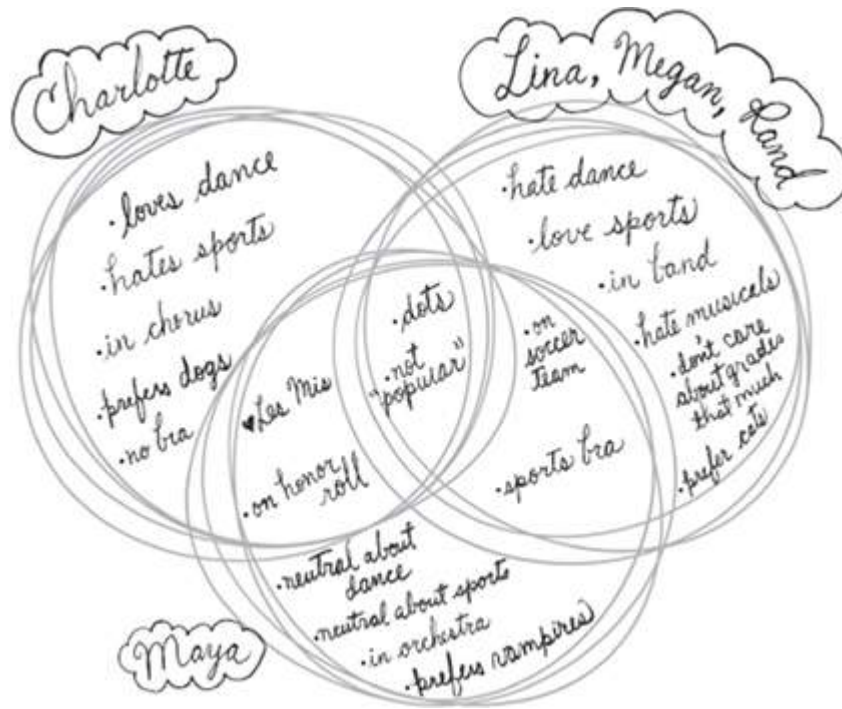 Charlotte
Lina, Megan, Rand
•loves dance
•hates sports
•in chorus
•prefers dogs
•no bra
•hate dance
•love sports
•in band
•hate musicals
•don't care
about grades
that much
•prefer cats
•dots
•not
"popular"
•on
soccer
team
•sports bra
♥Les Mis
•on honor
roll
•neutral about
dance
•neutral about sports
•in orchestra
•prefers vampires
Maya